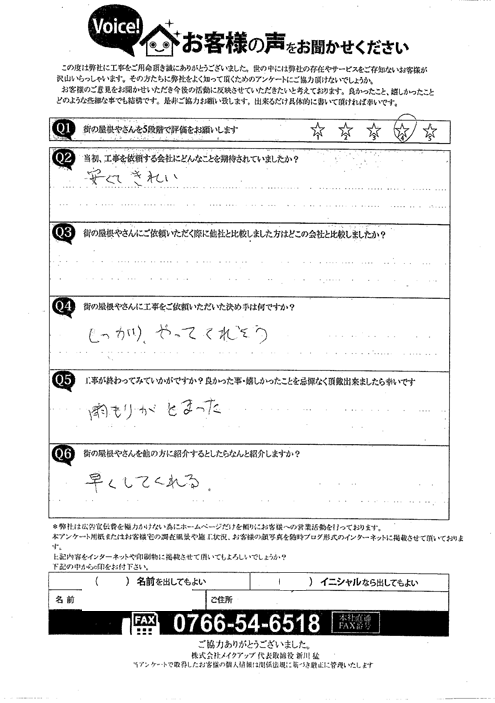 Voice!
お客様の声をお聞かせください
この度は弊社に工事をご用命頂き誠にありがとうございました。世の中には弊社の存在やサービスをご存知ないお客様が
沢山いらっしゃいます。その方たちに弊社をよく知って頂くためのアンケートにご協力頂けないでしょうか。
お客様のご意見をお聞かせいただき今後の活動に反映させていただきたいと考えております。良かったこと、嬉しかったこと
どのような些細な事でも結構です。是非ご協力お願い致します。出来るだけ具体的に書いて頂ければ幸いです。
Q1 街の屋根やさんを5段階で評価をお願いします ☆1 ☆2 ☆3 ☆4 ☆5
Q2 当初、工事を依頼する会社にどんなことを期待されていましたか?
安くてきれい
Q3 街の屋根やさんにご依頼いただく際に他社と比較しました方はどこの会社と比較しましたか?
Q4 街の屋根やさんに工事をご依頼いただいた決め手は何ですか?
しっかり、やってくれそう
Q5 工事が終わってみていかがですか?良かった事・嬉しかったことを忌憚なく頂戴出来ましたら幸いです
雨もりがとまった
Q6 街の屋根やさんを他の方に紹介するとしたらなんと紹介しますか?
早くしてくれる。
*弊社は広告宣伝費を極力かけない為にホームページだけを頼りにお客様への営業活動を行っております。
本アンケート用紙またはお客様宅の調査風景や施工状況、お客様の顔写真を随時ブログ形式のインターネットに掲載させて頂いておりま
す。
上記内容をインターネットや印刷物に掲載させて頂いてもよろしいでしょうか?
下記の中から○印をお付下さい。
( ) 名前を出してもよい ( ) イニシャルなら出してもよい
名前 ご住所
FAX 0766-54-6518 本社直通 FAX番号
ご協力ありがとうございました。
株式会社メイクアップ 代表取締役 新川 猛
当アンケートで取得したお客様の個人情報は関係法規に基づき厳正に管理いたします